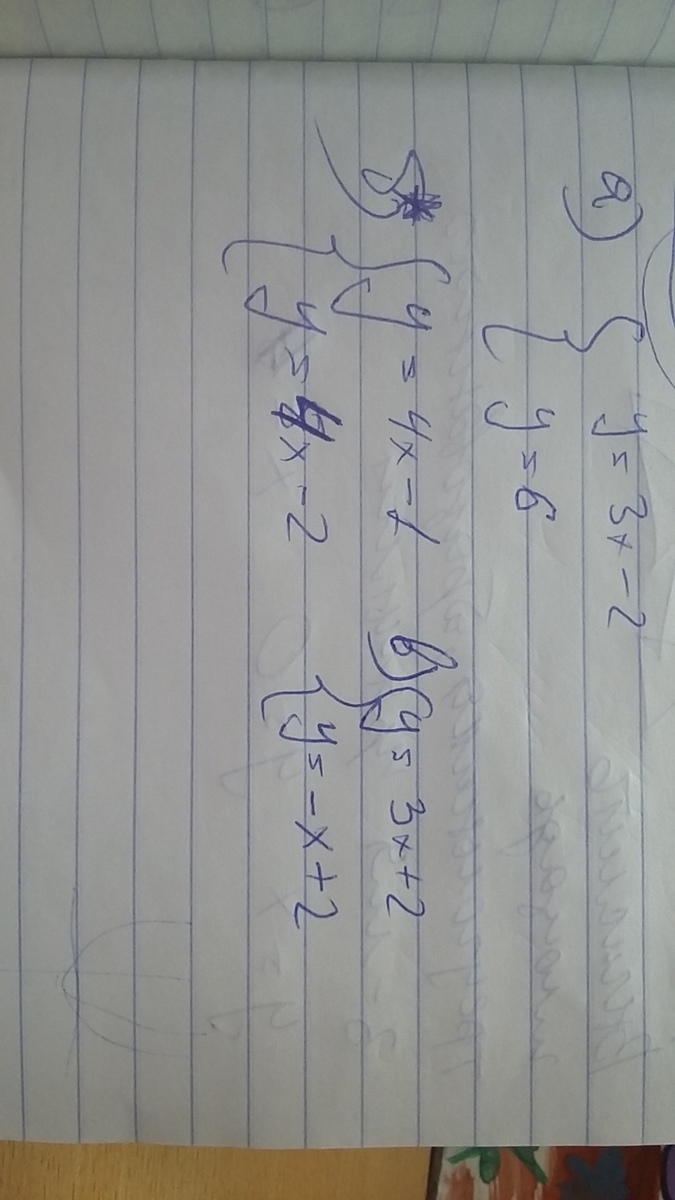 а) { y = 3x - 2
y = 6
б) { y = 4x - 1
y = 4x - 2
в) { y = 3x + 2
y = -x + 2